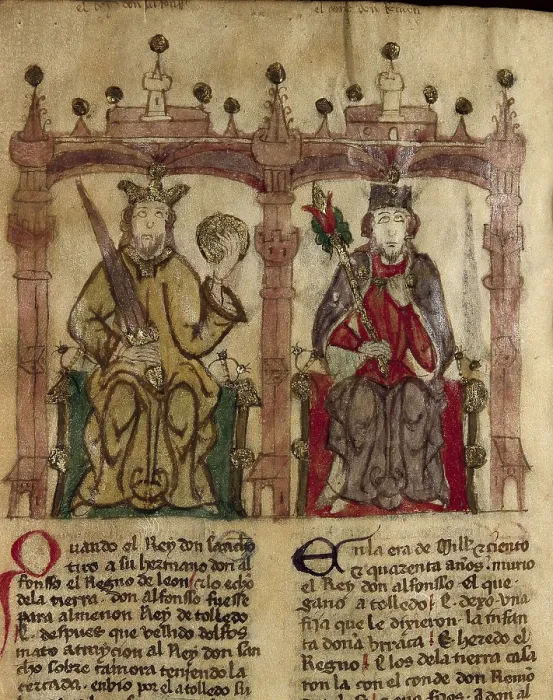 el Rey don alfonsso
el conde don Remon
Quando el Rey don sancho
tiro a su hermano don al
fonsso el Regno de leon z lo echo
dela tierra. don alfonsso fuesse
para almemon Rey de tolledo
E despues que vellido dolfos
mato atrayçion al Rey don san
cho sobre çamora teniendo la
çercada. enbio por el a tolledo su
En la era de Mill z çiento
z quarenta años. murio
el Rey don alfonsso El que
gano a tolledo E dexo vna
fija que le dixieron. la infan
ta doña hrraca E heredo el
Regno E los dela tierra casa
ron la con el conde don Remo